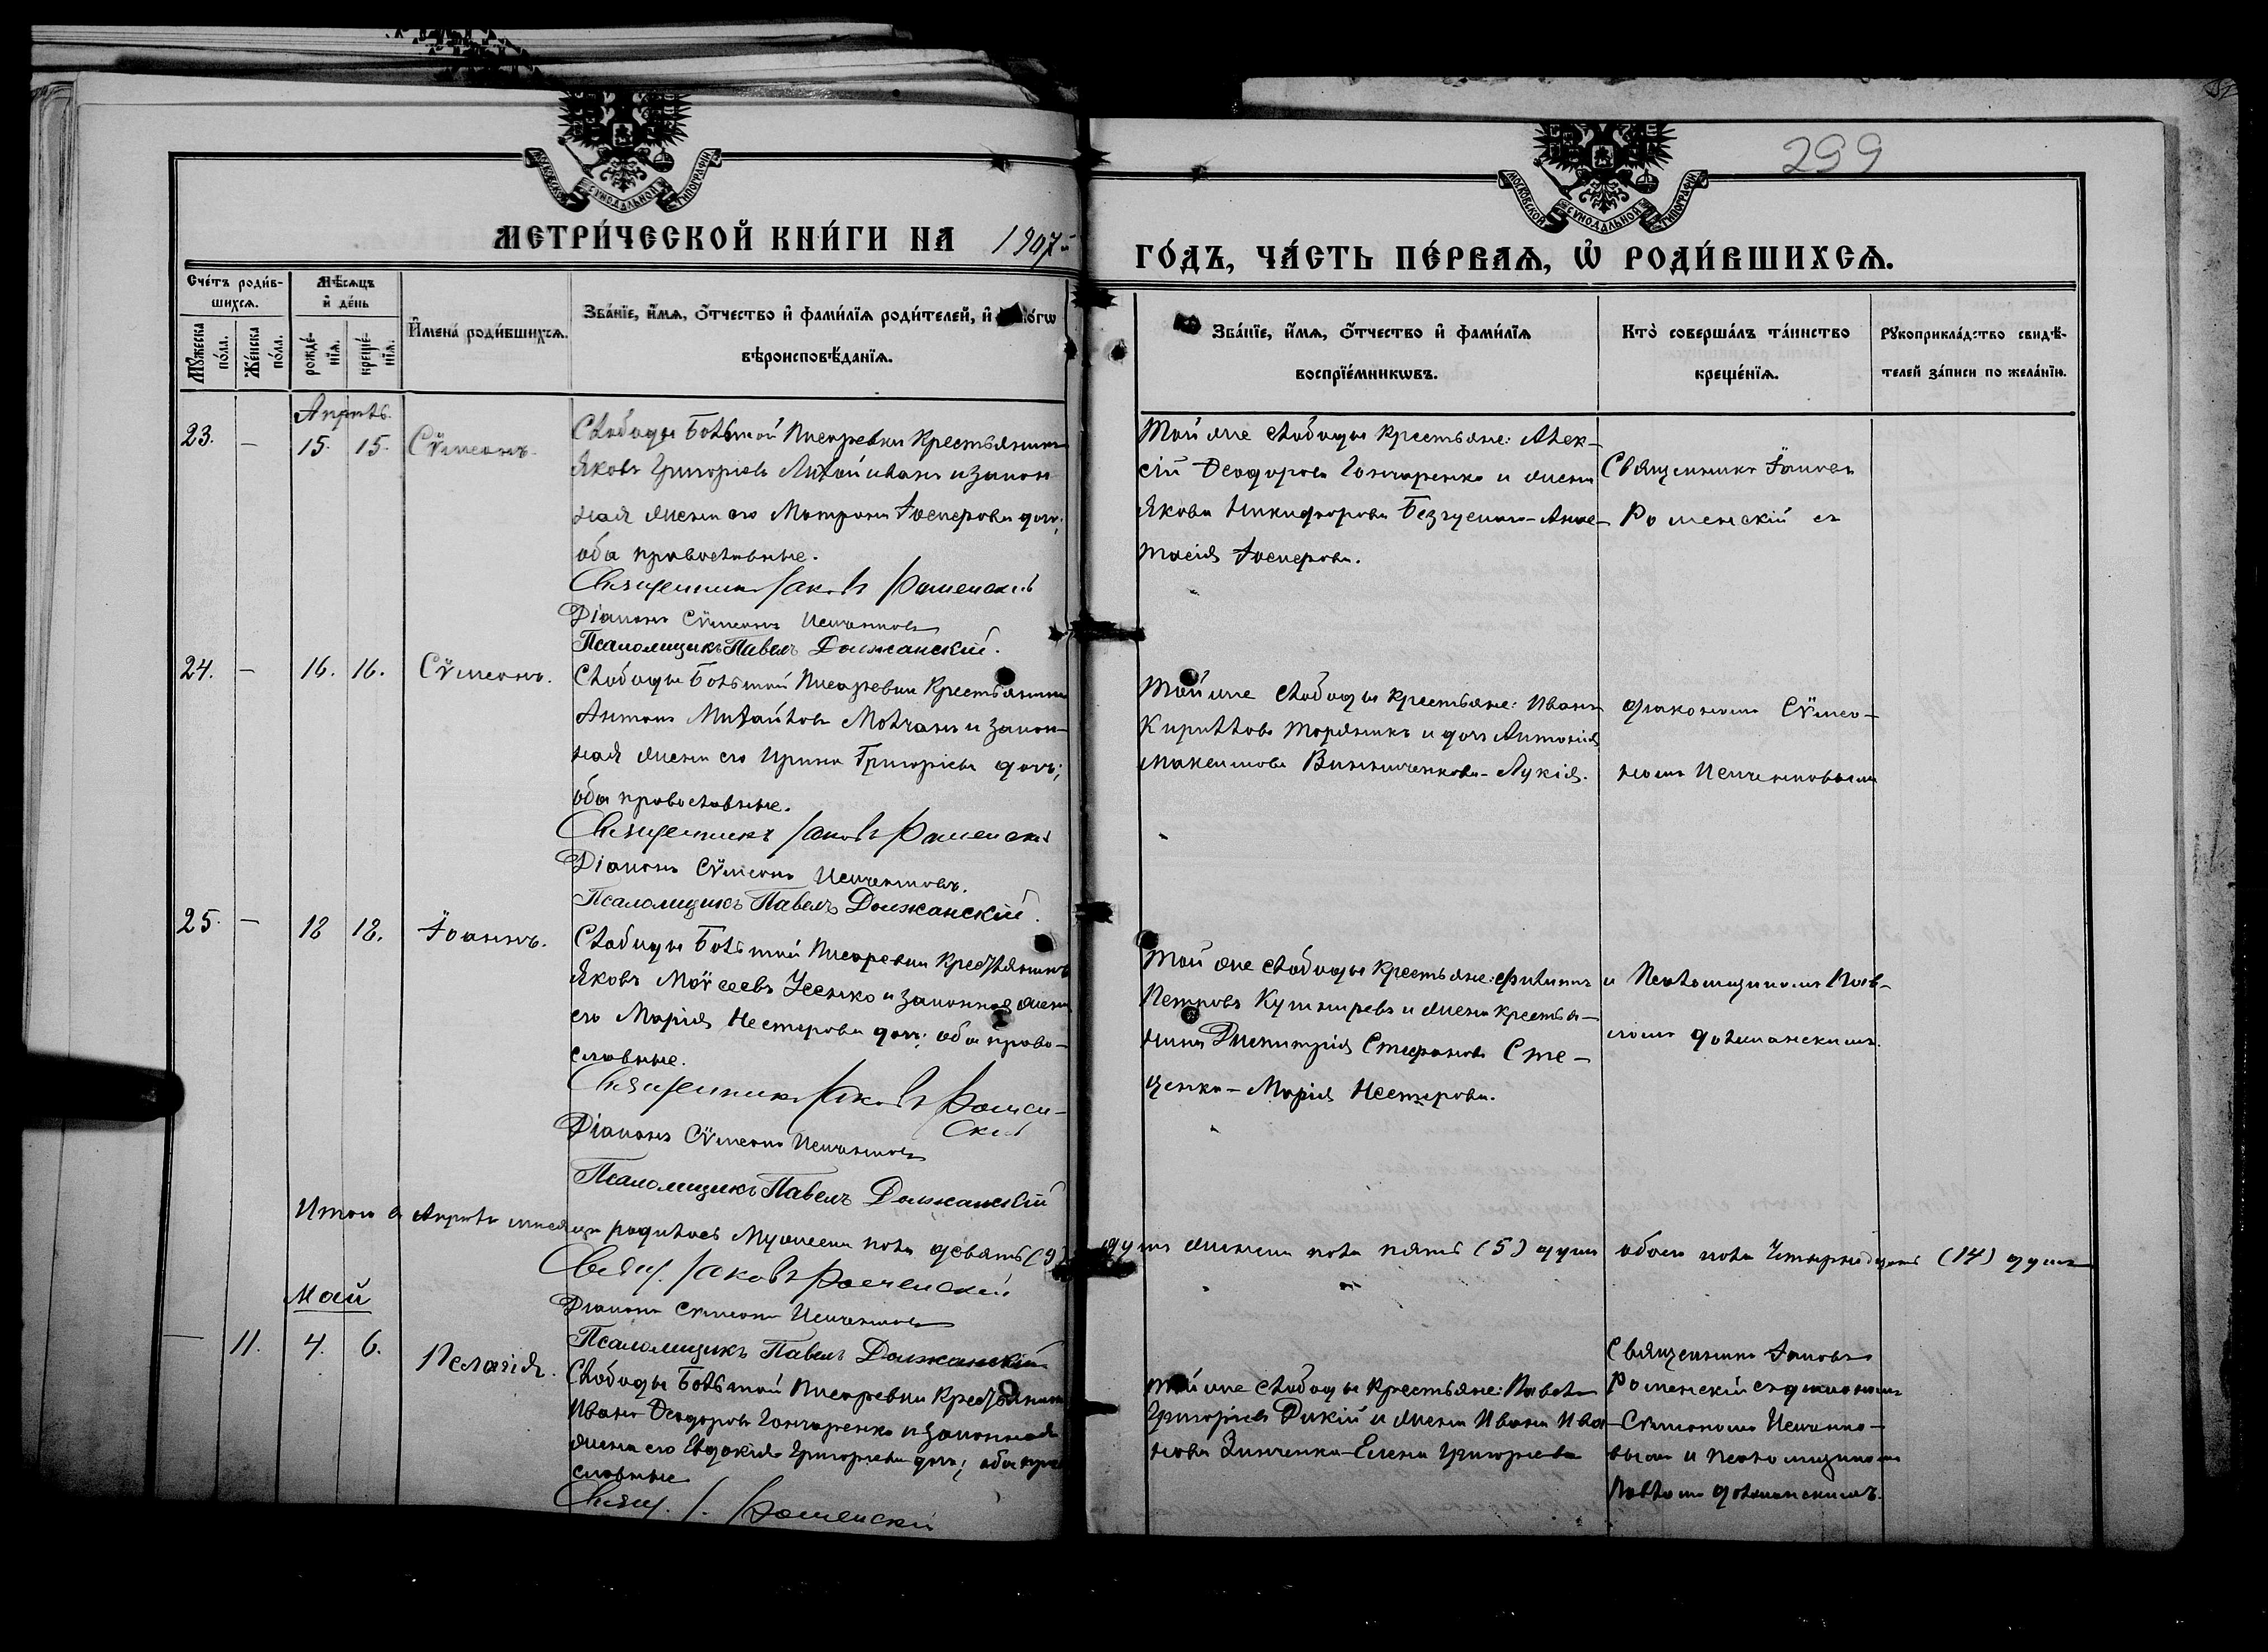 299
МОСКОВСКОЙ СУНОДАЛЬНОЙ ТИПОГРАФІИ
МОСКОВСКОЙ СУНОДАЛЬНОЙ ТИПОГРАФІИ
МЕТРИ́ЧЕСКОЙ КНИ́ГИ НА 1907й
ГО́ДЪ, ЧА́СТЬ ПЕ́РВАѦ, Ѽ РОДИ́ВШИХСѦ.
Сче́тъ роди́в-
шихсѧ.
Мѣ́сѧцъ
и҆ де́нь
Мꙋ́жеска по́ла.
Же́нска по́ла.
рожде́-
нїѧ.
креще́-
нїѧ.
И҆мена̀ роди́вшихсѧ.
Зва́нїе, и҆́мѧ, ѻ҆́тчество и҆ фами́лїѧ роди́телей, и҆
вѣроисповѣ́данїѧ.
Зва́нїе, и҆́мѧ, ѻ҆́тчество и҆ фами́лїѧ
воспрїе́мникѡвъ.
Кто̀ соверша́лъ та́инство
креще́нїѧ.
Рꙋкоприкла́дство свидѣ́-
телей за́писи по жела́нїю.
Апрѣль.
23. — 15. 15. Сѵмеонъ.
Слободы Большой Писаревки крестьянинъ
Яковъ Григорьевъ и закон-
ная жена его Матрона дочь;
оба православные.
Священникъ Іаковъ Роменскій
Діаконъ Сѵмеонъ
Псаломщикъ Павелъ Должанскій.
Той же слободы крестьяне: Алек-
сій Ѳеодоровъ Гончаренко и жена
Якова Никифорова Безгуснаго - Анас-
тасія
Священникъ Іаковъ
Роменскій съ
24. — 16. 16. Сѵмеонъ.
Слободы Большой Писаревки крестьянинъ
Антонъ Михайловъ Молчанъ и закон-
ная жена его Ирина Григорьева дочь;
оба православные.
Священникъ Іаковъ Роменскій
Діаконъ Сѵмеонъ
Псаломщикъ Павелъ Должанскій.
Той же слободы крестьяне: Иванъ
Кирилловъ Торяникъ и дочь Антонія
Максимова Винниченкова - Лукія.
діакономъ Сѵмео-
номъ
25. — 18 18. Іоаннъ.
Слободы Большой Писаревки крестьянинъ
Яковъ Моѵсеевъ Усенко и законная жена
его Марія Нестерова дочь; оба право-
славные.
Священникъ Іаковъ Ромен-
скій
Діаконъ Сѵмеонъ
Псаломщикъ Павелъ Должанскій
Той же слободы крестьяне: Филиппъ
Петровъ Кушниревъ и жена крестья-
нина Димитрія Стефанова Сте-
ценко - Марія Нестерова.
и Псаломщикомъ Пав-
ломъ Должанскимъ.
Итого въ Апрѣлѣ мѣсяцѣ родилось Мужеска пола девять (9) душъ женска пола пять (5) душъ обоего пола четырнадцать (14) душъ
Свящ. Іаковъ Роменскій
Діаконъ Сѵмеонъ
Псаломщикъ Павелъ Должанскій
Май
— 11. 4. 6. Пелагія.
Слободы Большой Писаревки крестьянинъ
Иванъ Ѳеодоровъ Гончаренко и законная
жена его Евдокія Григорьева дочь; оба право
славные
Свящ. І. Роменскій
Той же слободы крестьяне: Павелъ
Григорьевъ Дикій и жена Ивана Ива
нова Зинченка - Елена Григорьева
Священникъ Іаковъ
Роменскій съ діакономъ
Сѵмеономъ
вымъ и псаломщикомъ
Павломъ Должанскимъ.